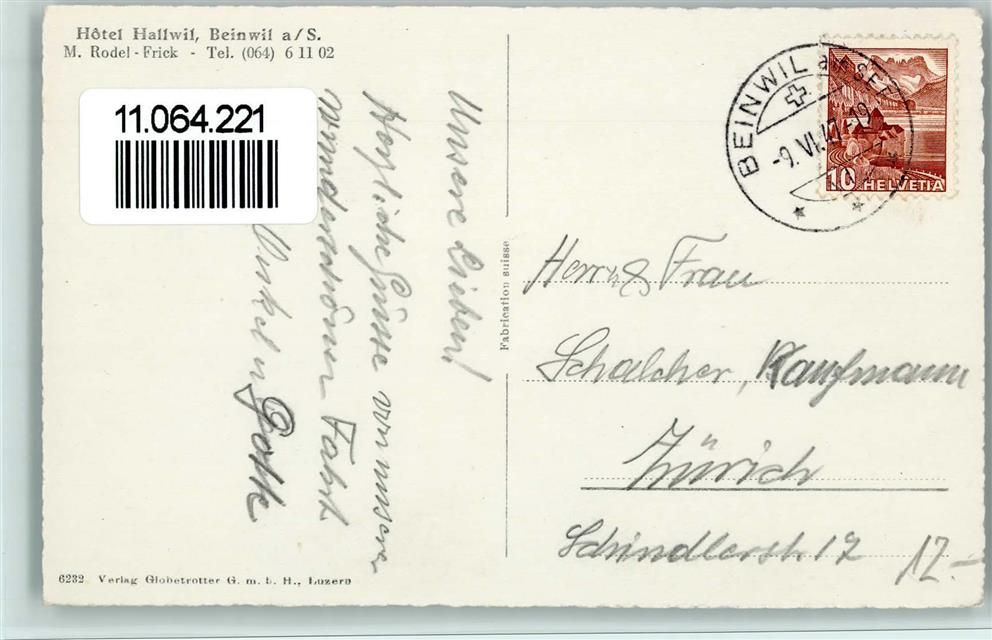 Hôtel Hallwil, Beinwil a/S.
M. Rodel-Frick - Tel. (064) 6 11 02
11.064.221
Unsere Lieben!
Herzliche Grüsse von unserer
wunderschönen Fahrt
Onkel u Gotte
Fabrication suisse
BEINWIL am SEE
-9.VI.47-19
10 HELVETIA
Herrn & Frau
Schalcher, Kaufmann
Zürich
Schindlerstr. 17
12.-
6232 Verlag Globetrotter G. m. b. H., Luzern